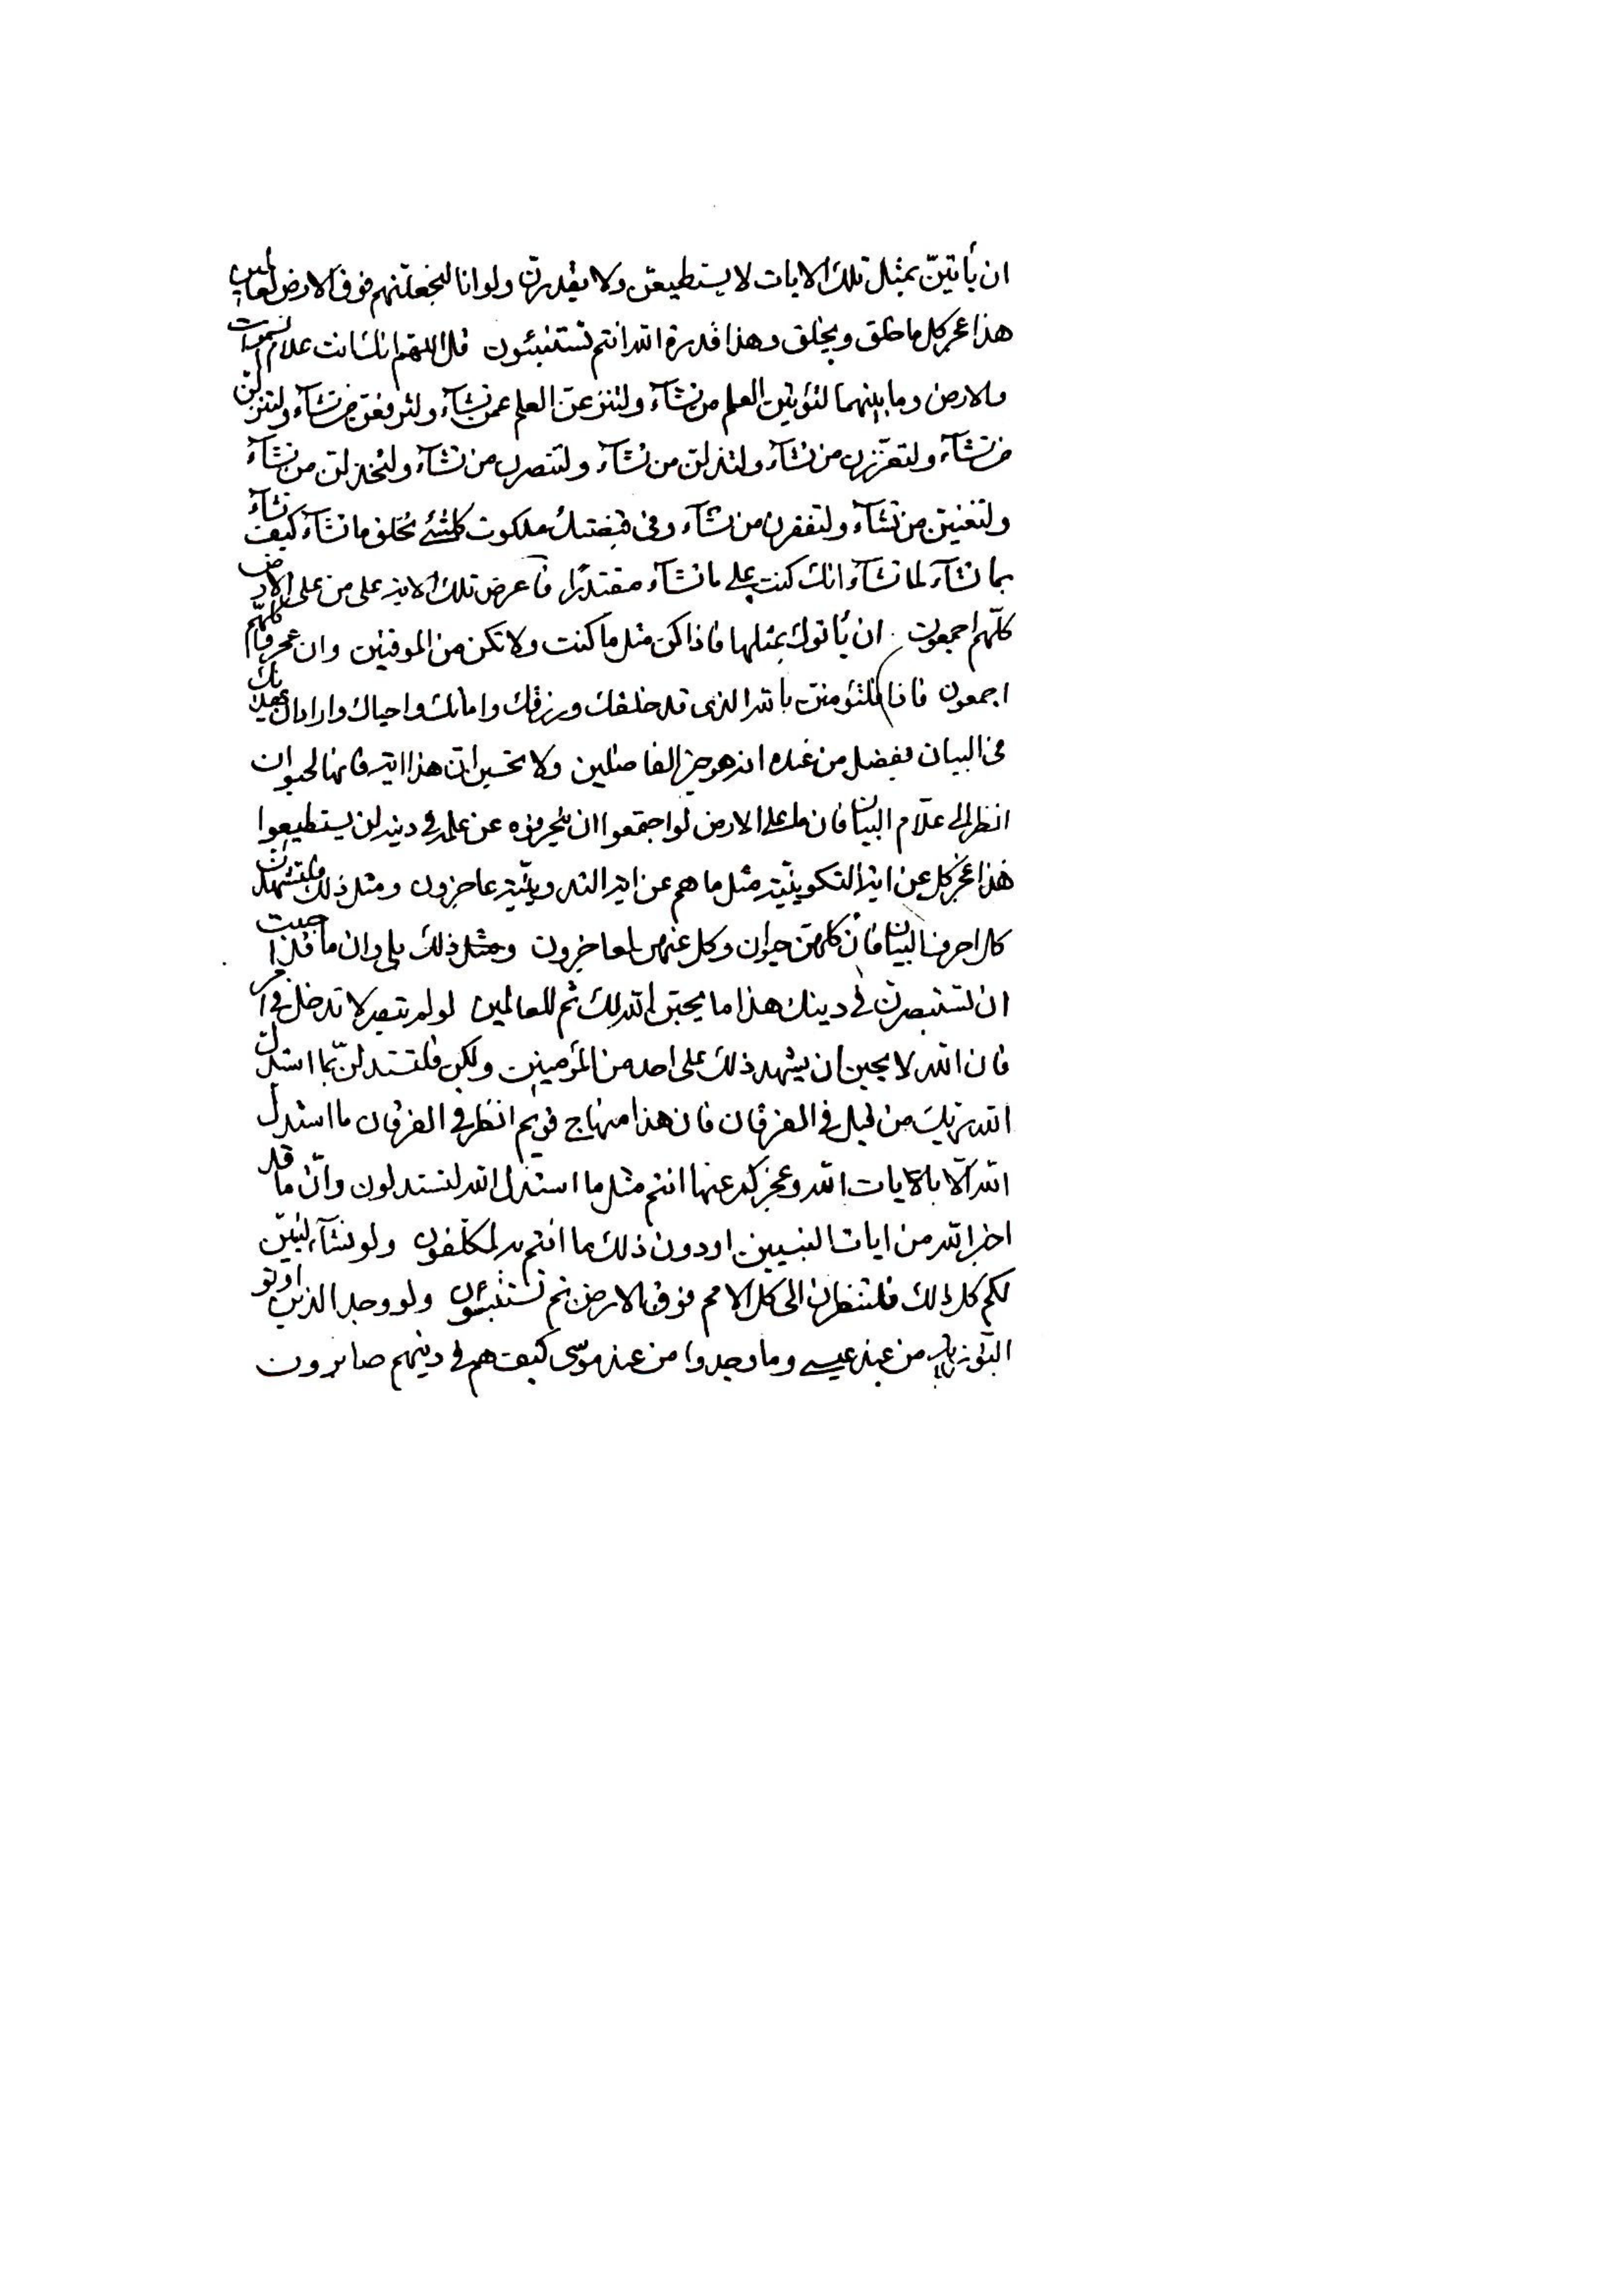 ان يأتينّ بمثل تلك الايات لا يستطيعنّ ولا يقدرنّ ولو انا لنجعلنّهم فوق الارض لعالمين
هذا عجز كل ما خلق ويخلق وهذا قدرة الله انتم تستنبئون قل اللهم انك انت علام السموات
والارض وما بينهما لتؤتين العلم من تشآء ولتنزعنّ العلم عمن تشآء ولترفعن من تشآء ولتنزلن
من تشآء ولتعززن من تشآء ولتذلن من تشآء ولتنصرن من تشآء ولتخذلن من تشآء
ولتغنين من تشآء ولتفقرن من تشآء وفى قبضتك ملكوت كلشئ تخلق ما تشآء كيف تشآء
بما تشآء لما تشآء انك كنت على ما تشآء مقتدرا فاعرض تلك الاية على من على الارض
كلّهم اجمعون ان يأتوك بمثلها فاذا كن مثل ما كنت ولا تكن من الموقنين وان عجزوا كلهم
اجمعون فاذا فلتؤمنن بالله الذى قد خلقك ورزقك واماتك واحياك واراد ان يهديك
فى البيان بفضل من عنده انه هو خير الفاصلين ولا تحسبن ان هذا اية فانها لحيوان
انظر الى علّام البيان فان من على الارض لو اجتمعوا ان يحرفوه عن علمه فى دينه لن يستطيعوا
هذا عجز كل عن اية التكوينيّة مثل ما هم عن اية التدوينيّة عاجزون ومثل ذلك فلتشهدن
كل احرف البيان فان كلهن حيوان وكل عنهن لعاجزون ومثل ذلك بلى وان ما قد احببت
ان تستبصرن فى دينك هذا ما يحبّن الله لك ثم للعالمين لو لم تتبصر لا تدخل فى امر
فان الله لا يحبن ان يشهد ذلك على احد من المؤمنين ولكن فلتستدلن بما استدل
الله ربك من قبل فى الفرقان فان هذا منهاج قويم انظر فى الفرقان ما استدل
الله الّا بالايات الله وعجز كل عنها انتم مثل ما استدل الله لتستدلون وانّ ما قد
اخبر الله من ايات النبيين او دون ذلك ما انتم به لمكلّفون ولو نشآء لنبينّ
لكم كل ذلك فلتنظرن الى كل الامم فوق الارض ثم تستنبئون ولو وجد الذين اوتو
التورية من عند عيسى وما وجدوا من عند موسى كيف هم فى دينهم صابرون